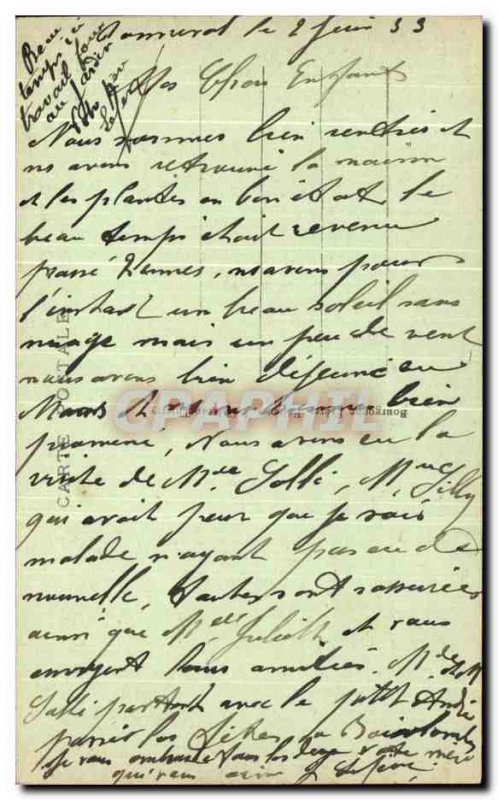 le 2 Juin 33
Beau
temps ici
travail pour
au jardin
Mes Chers Enfants
Nous sommes bien rentrés et
ns avons retrouvé la maison
et les plantes en bon état, le
beau temps était revenu
passé Nimes, ns avons pour
l'instant un beau soleil sans
nuage mais un peu de vent
nous avons bien déjeuné
et bien
promené, Nous avons eu la
visite de Melle Solli, Mme Gilly
qui avait peur que je sois
malade n'ayant pas eu de
nouvelle, toutes sont rassurées
ainsi que Melle Juliette et vous
envoyent leurs amitiés. M. de
partant avec le petit André
passer les fêtes
je vous embrasse tous les deux votre mère
qui vous aime
CARTE POSTALE
CPAPHIL